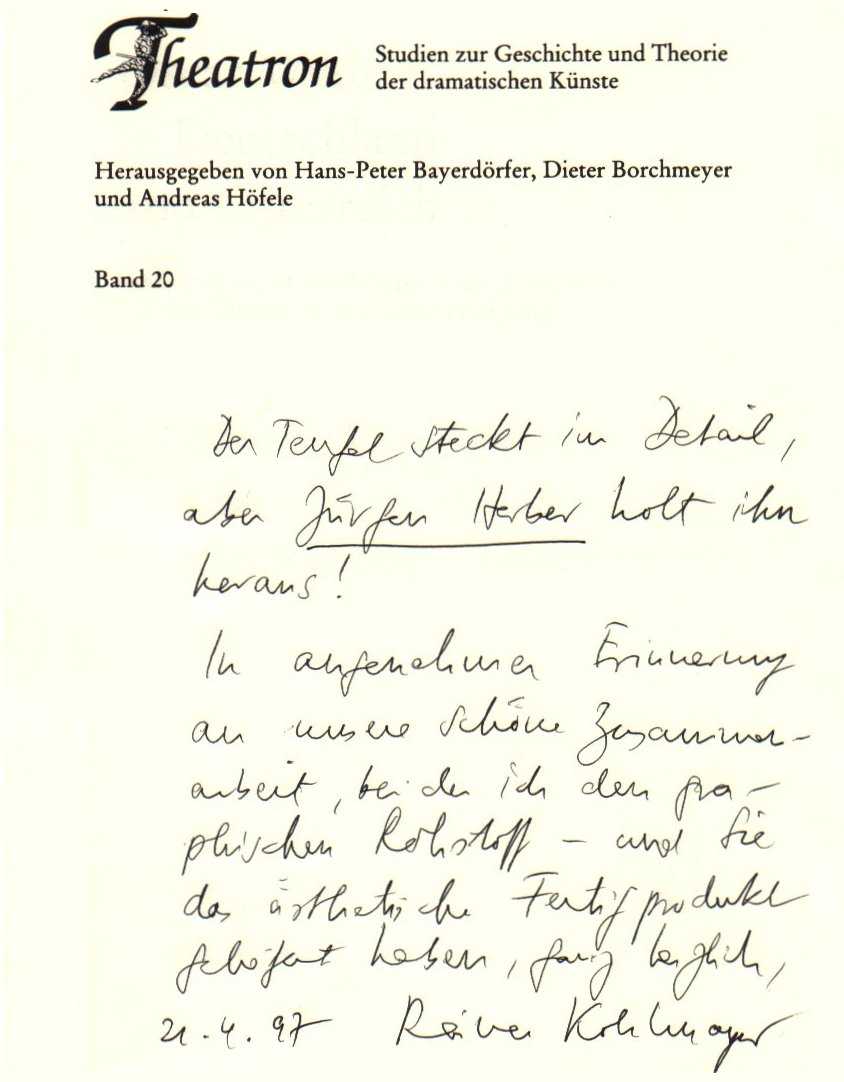 Theatron
Studien zur Geschichte und Theorie
der dramatischen Künste
Herausgegeben von Hans-Peter Bayerdörfer, Dieter Borchmeyer
und Andreas Höfele
Band 20
Der Teufel steckt im Detail,
aber Jürgen Herber holt ihn
heraus!
In angenehmer Erinnerung
an unsere schöne Zusammen-
arbeit, bei der ich den gra-
phischen Rohstoff – und Sie
das ästhetische Fertigprodukt
geliefert haben, ganz herzlich,
21.4.97 Rainer Kohlmayer